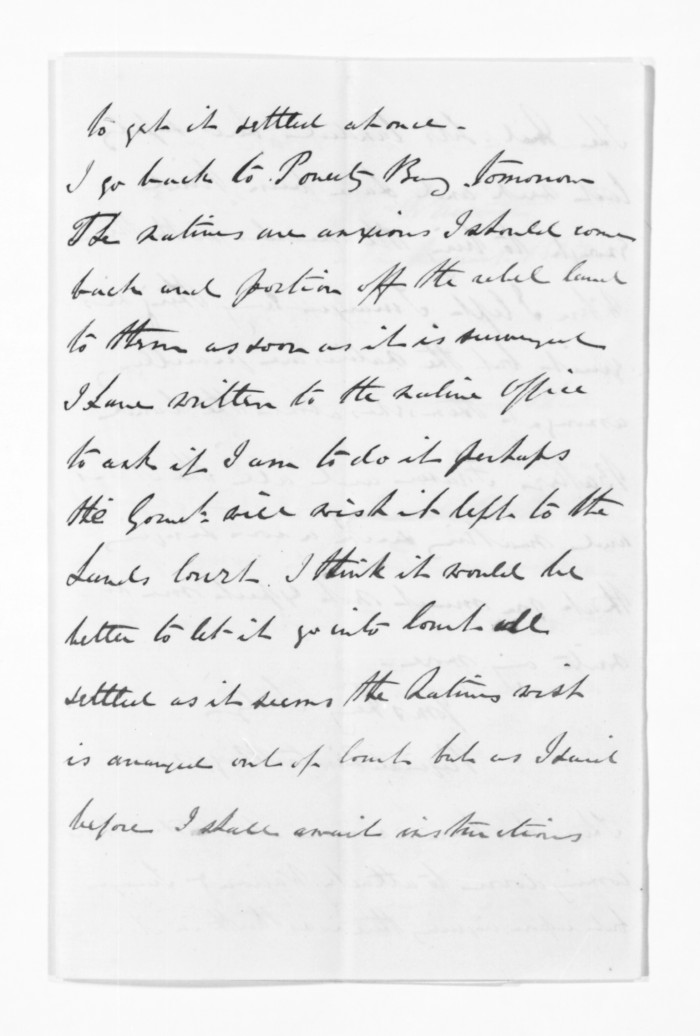 to get it settled at once -
I go back to Poverty Bay Tomorrow
The natives are anxious I should come
back and portion off the rebel land
to them as soon as it is surveyed
I have written to the native Office
to ask if I am to do it perhaps
the Govmt. will wish it left to the
Lands Court. I think it would be
better to let it go into Court all
settled as it seems the Natives wish
is arranged out of Court but as I said
before I shall await instructions